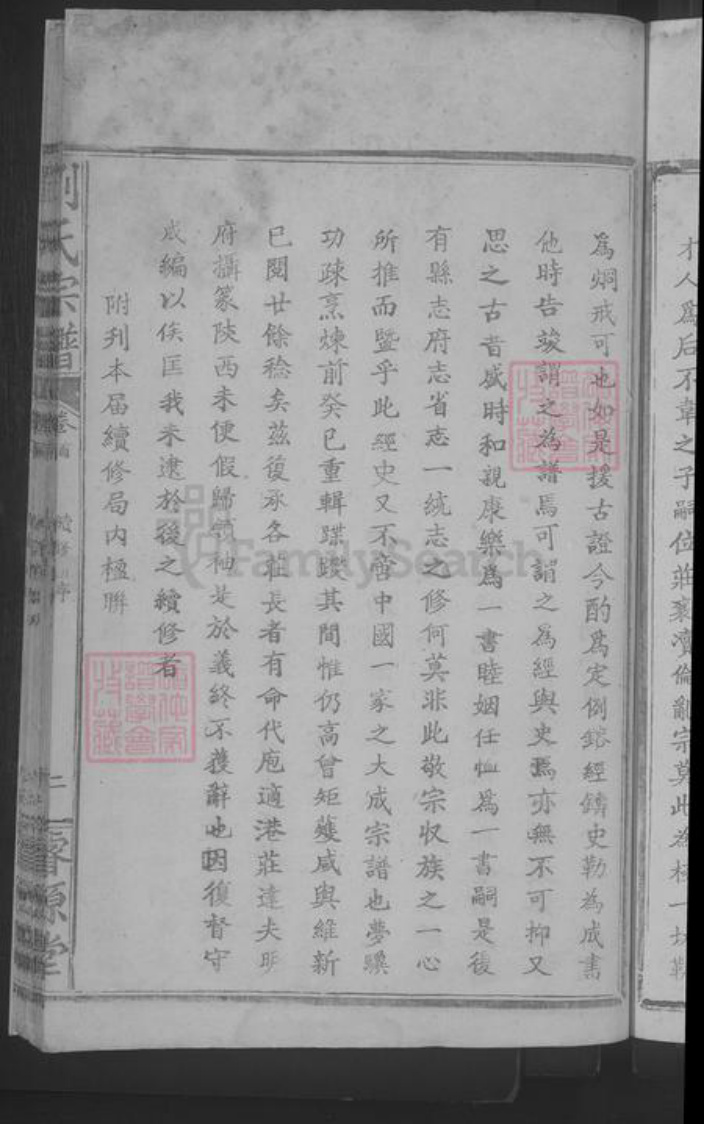 才人爲后不韋之子嗣位莊襄瀆倫亂宗莫此爲極一切
爲炯戒可也如是援古證今酌爲定例鎔經鑄史勒為成書
他時告竣謂之為譜焉可謂之為經與史焉亦無不可抑又
思之古昔盛時和親康樂爲一書睦姻任恤爲一書嗣是後
有縣志府志省志一統志之修何莫非此敬宗收族之一心
所推而暨乎此經史又不啻中國一家之大成宗譜也夢驥
功疎烹煉前癸巳重輯蹀蹀其間惟仍高曾矩矱咸與維新
已閱廿餘稔矣茲復承各祖長者有命代庖適港莊達夫明
府攝篆陝西未便假歸領袖是於義終不獲辭也因復督守
成編以俟匡我未逮於後之續修者
附刊本届續修局内楹聯
劉氏宗譜
卷首
續修序
二
睿源堂
FamilySearch